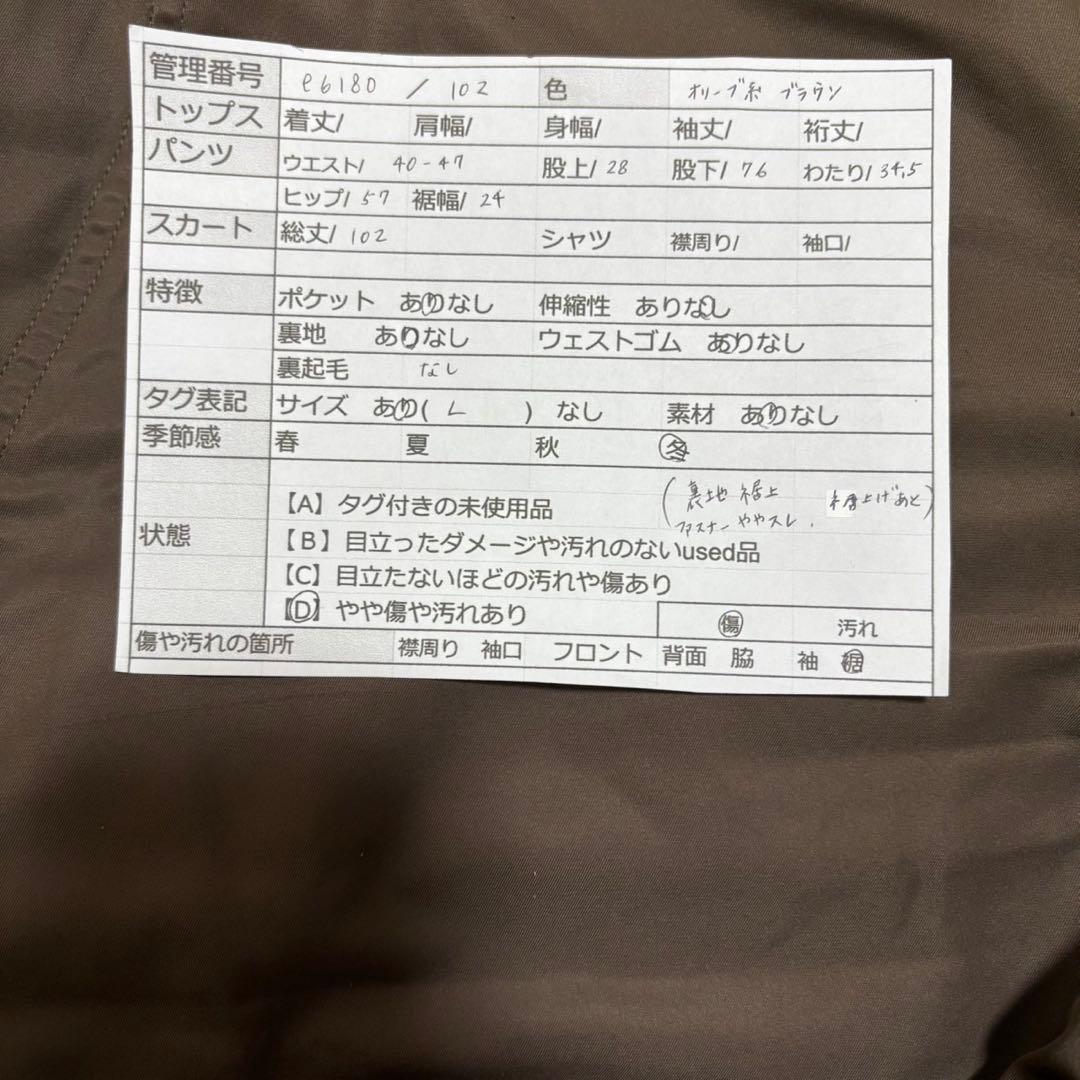 管理番号 e6180 / 102 色 オリーブ系 ブラウン
トップス 着丈/ 肩幅/ 身幅/ 袖丈/ 裄丈/
パンツ ウエスト/ 40-47 股上/ 28 股下/ 76 わたり/ 34.5
ヒップ/ 57 裾幅/ 24
スカート 総丈/ 102 シャツ 襟周り/ 袖口/
特徴 ポケット ありなし 伸縮性 ありなし
裏地 ありなし ウェストゴム ありなし
裏起毛 なし
タグ表記 サイズ あり( L ) なし 素材 ありなし
季節感 春 夏 秋 冬
【A】タグ付きの未使用品 (裏地 裾上 裾上げあと)
ファスナー ややスレ.
状態 【B】目立ったダメージや汚れのないused品
【C】目立たないほどの汚れや傷あり
【D】やや傷や汚れあり 傷 汚れ
傷や汚れの箇所 襟周り 袖口 フロント 背面 脇 袖 裾